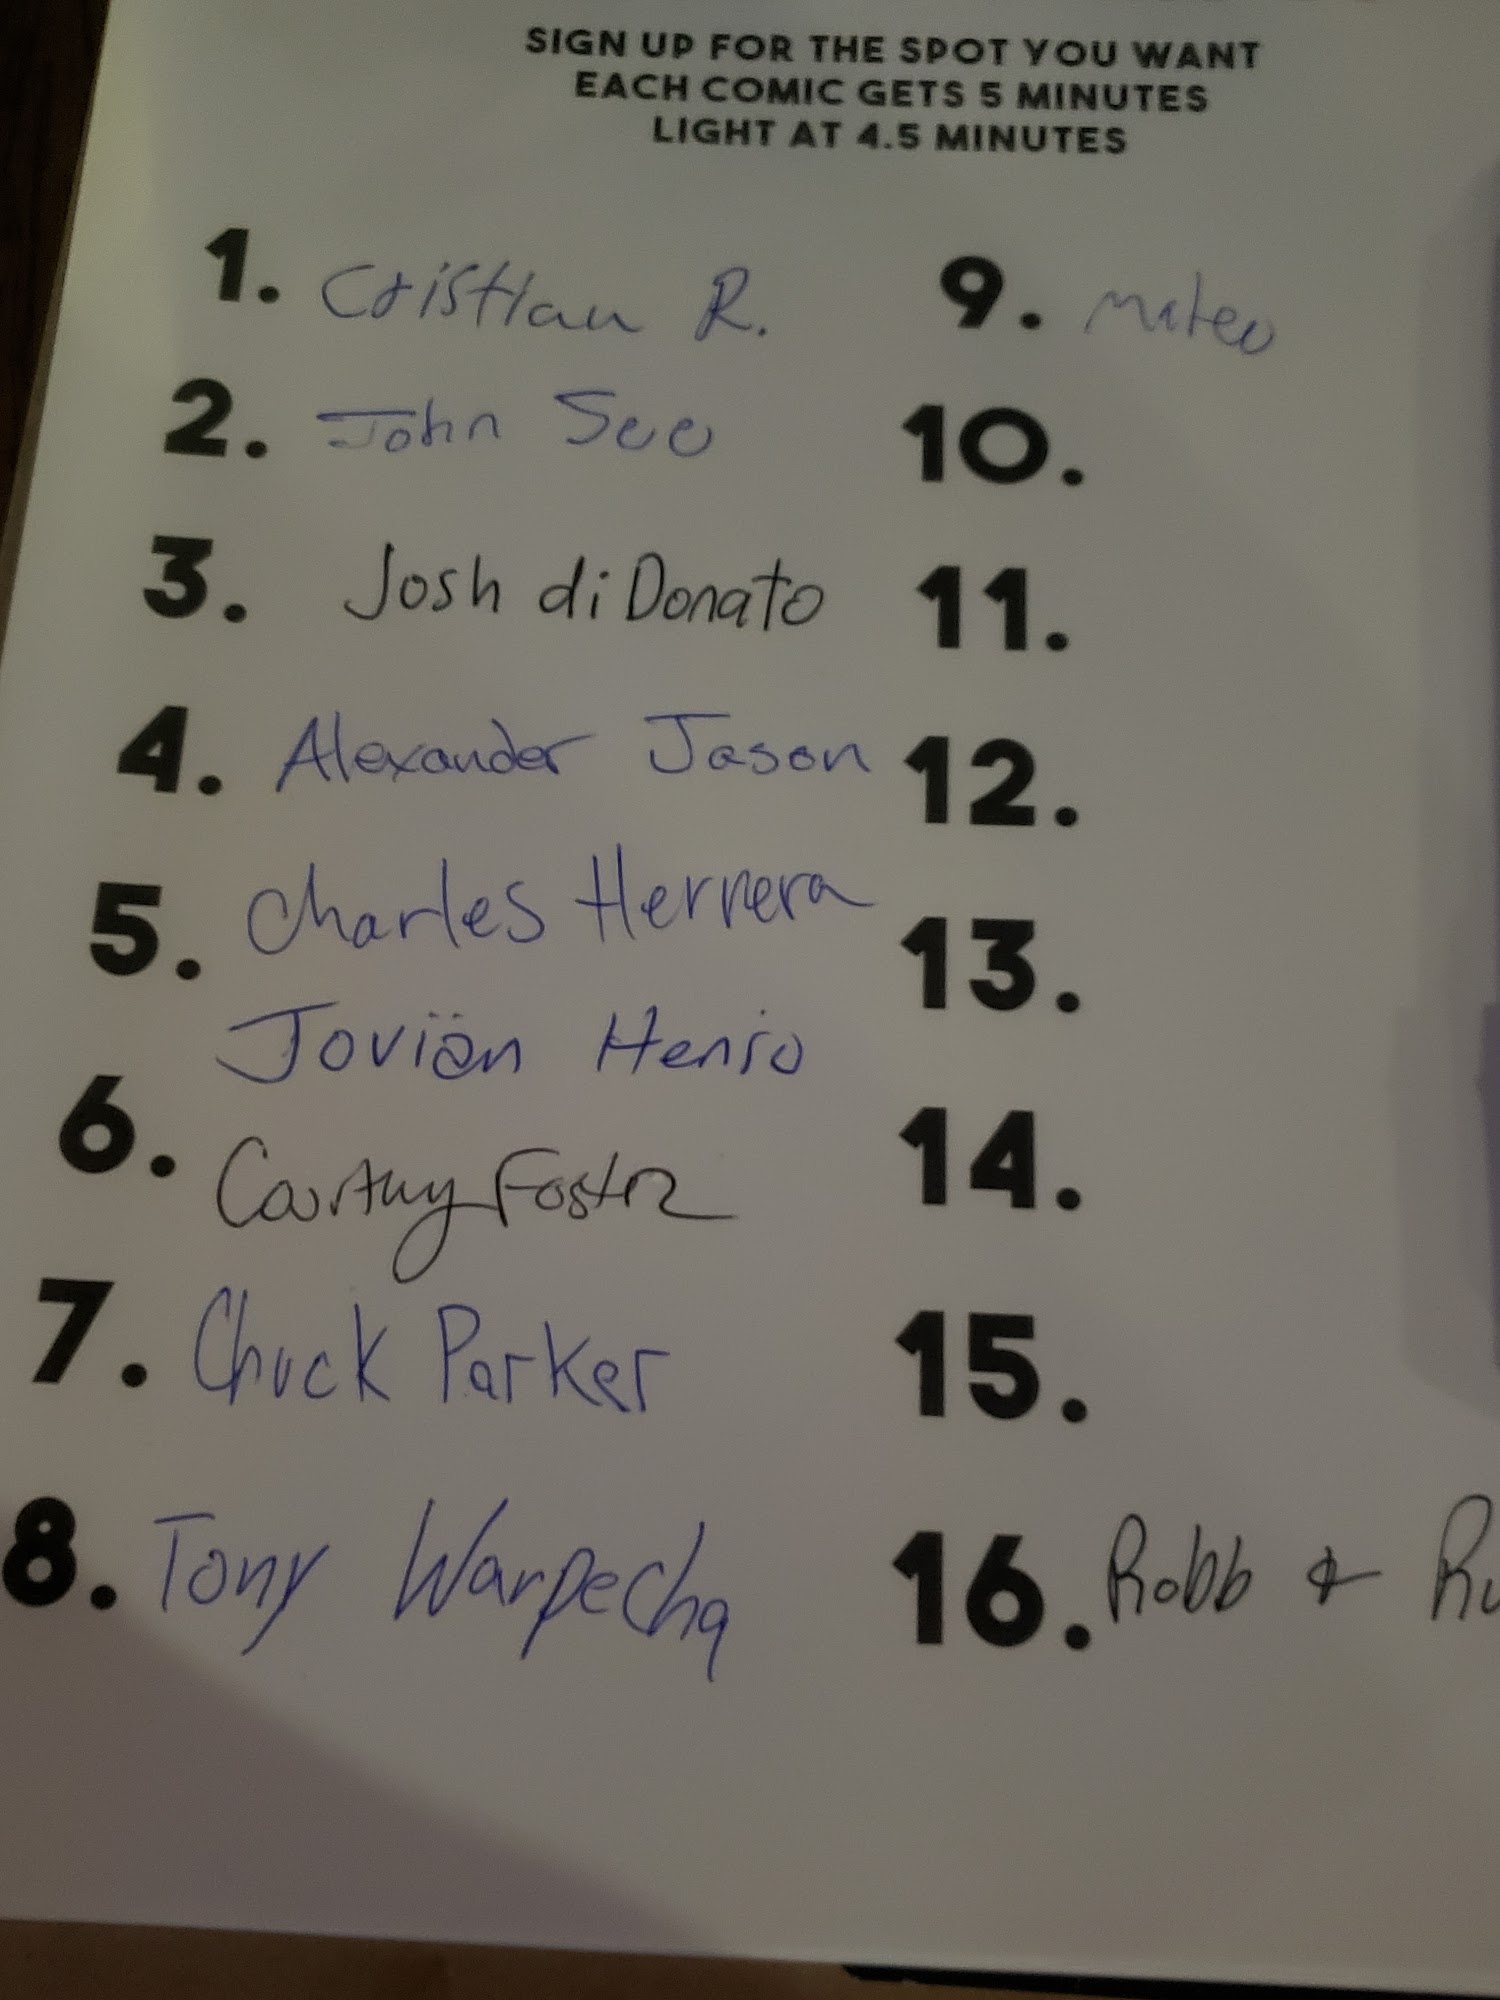 SIGN UP FOR THE SPOT YOU WANT
EACH COMIC GETS 5 MINUTES
LIGHT AT 4.5 MINUTES
1. Cristian R.
2. John See
3. Josh diDonato
4. Alexander Jason
5. Charles Herrera
Joviän Henio
6. Courtney Foster
7. Chuck Parker
8. Tony Warpecha
9. mateo
10.
11.
12.
13.
14.
15.
16. Robb &